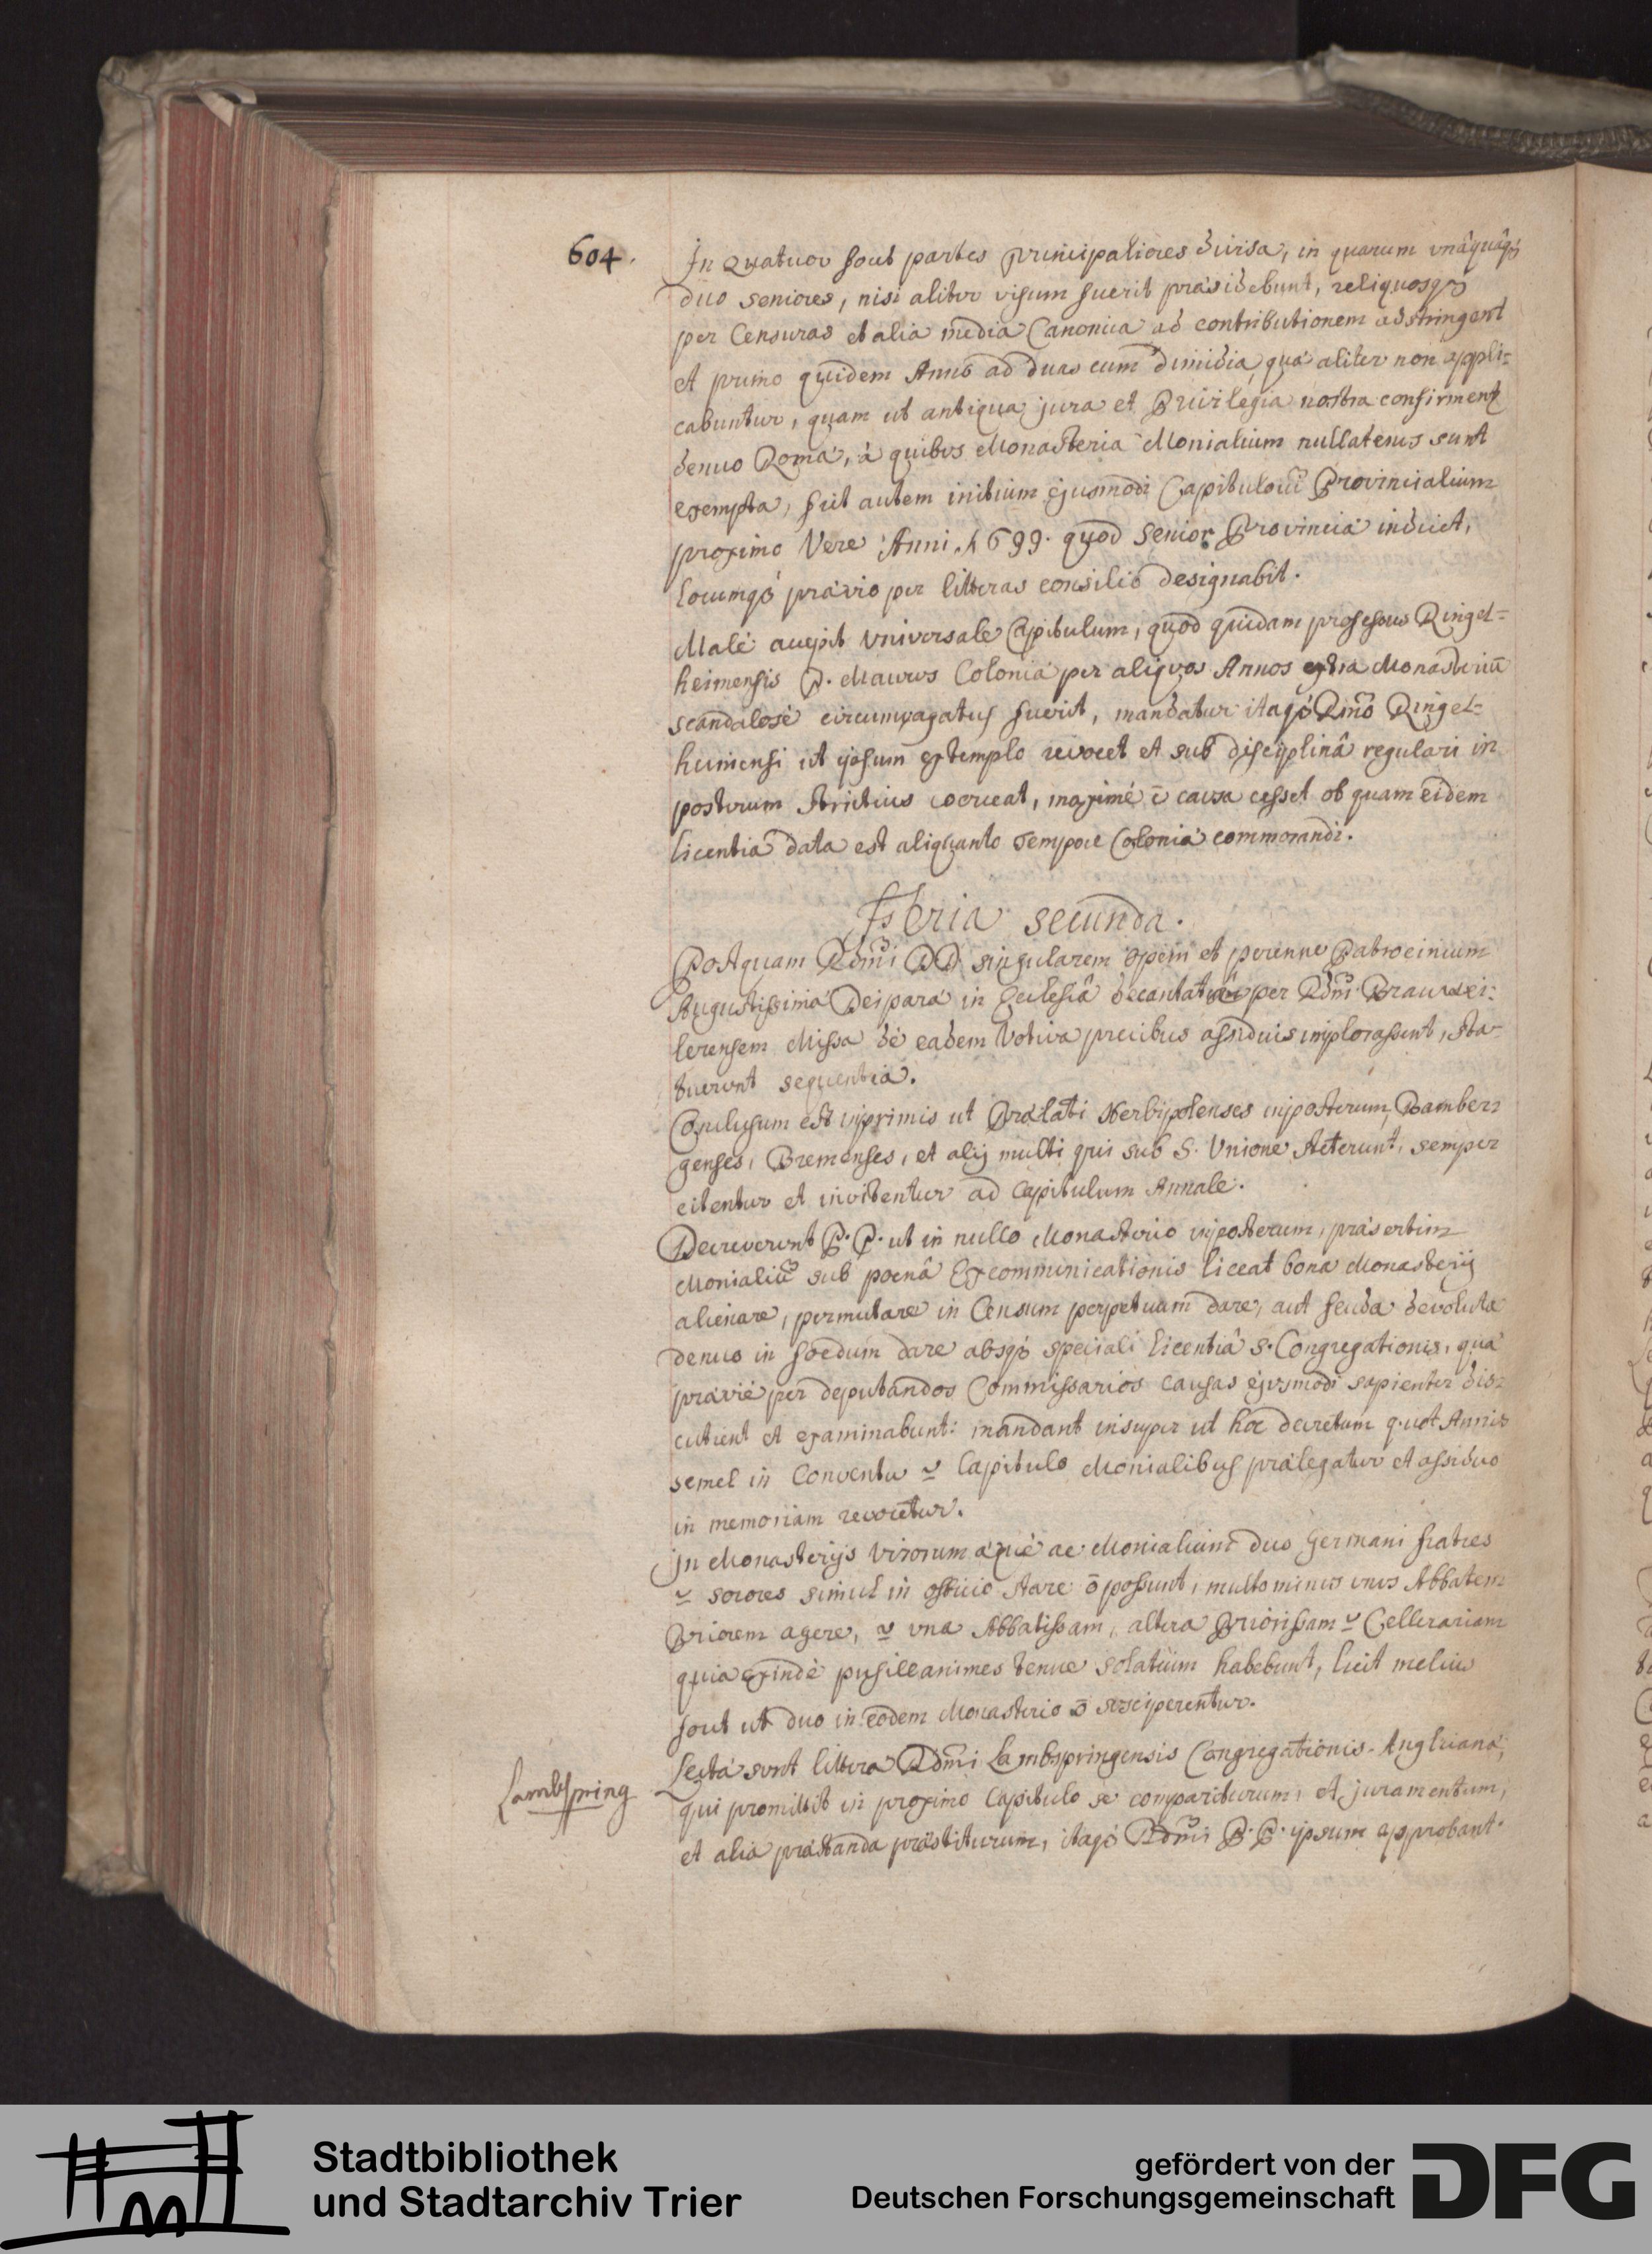 604.
In quatuor sont partes principaliores divisa, in quarum vnâquâq3
duo seniores, nisi aliter visum fuerit præsidebunt, reliquosq3
per Censuras et alia media Canonica ad contributionem adstringent
et primo quidem Anno ad duas cum dimidia quæ aliter non appli=
cabuntur, quam ut antiqua jura et Privilegia nostra confirment
denuo Romæ, à quibus Monasteria Monialium nullatenus sunt
exempta, fiet autem initium ejusmodi Capituloru Provincialium
proximo Vere Anni 1699. quod Senior Provinciæ indicet,
locumq3 prævio per litteras consilio designabit.
Malè accepit Vniversale Capitulum, quod quidam professus Ringel=
heimensis P. Maurus Coloniæ per aliquos Annos extra Monasteriū
scandalosè circumvagatus fuerit, mandatur itaq3 Rmo Ringel=
heimensi ut ipsum extemplo revocet et sub disciplinâ regulari in
posterum strictius coerceat, maximè c̄ causa cesset ob quam eidem
licentia data est aliquanto tempore Coloniæ commorandi.
Feria secunda.
Postquam Rdmi DD. singularem opem et perenne Patrocinium
Augustissimæ Deiparæ in Ecclesiâ decantatâ per Rdm Brauwei=
lerensem Missa de eadem Votiva precibus assiduis implorassent, sta=
tuerunt sequentia.
Conclusum est inprimis ut Prælati Herbipolenses inposterum, Bamber=
genses, Bremenses, et alij multi qui sub S. Vnione steterunt, semper
citentur et invitentur ad Capitulum Annale.
Decreverunt P.P. ut in nullo Monasterio inposterum, præsertim
Monialiū sub poenâ Excommunicationis liceat bona Monasterij
alienare, permutare in Censum perpetuum dare, aut feuda devoluta
denuo in foedum dare absq3 speciali licentiâ S. Congregationis, quæ
præviè per deputandos Commissarios causas ejusmodi sapienter dis=
cutient et examinabunt: mandant insuper ut hoc decretum quot Annis
semel in Conventu v̲ Capitulo Monialibus prælegatur et assiduo
in memoriam revocetur.
In Monasterijs Virorum æquè ac Monialium duo Germani fratres
v̲ sorores simul in officio stare ō possunt, multo minus vnus Abbatem
Priorem agere, v̲ vna Abbatissam, altera Priorissam v̲ Cellerariam
quia exindè pusillanimes tenue solatium habebunt, licet melius
foret ut duo in eodem Monasterio ō susciperentur.
Lambspring
Lectæ sunt litteræ Rdmi Lambspringensis Congregationis Anglicanæ,
qui promittit in proximo Capitulo se compariturum, et juramentum,
et alia præstanda præstiturum, itaq3 Rdmi P.P. ipsum approbant.
Stadtbibliothek
und Stadtarchiv Trier
gefördert von der
Deutschen Forschungsgemeinschaft
DFG